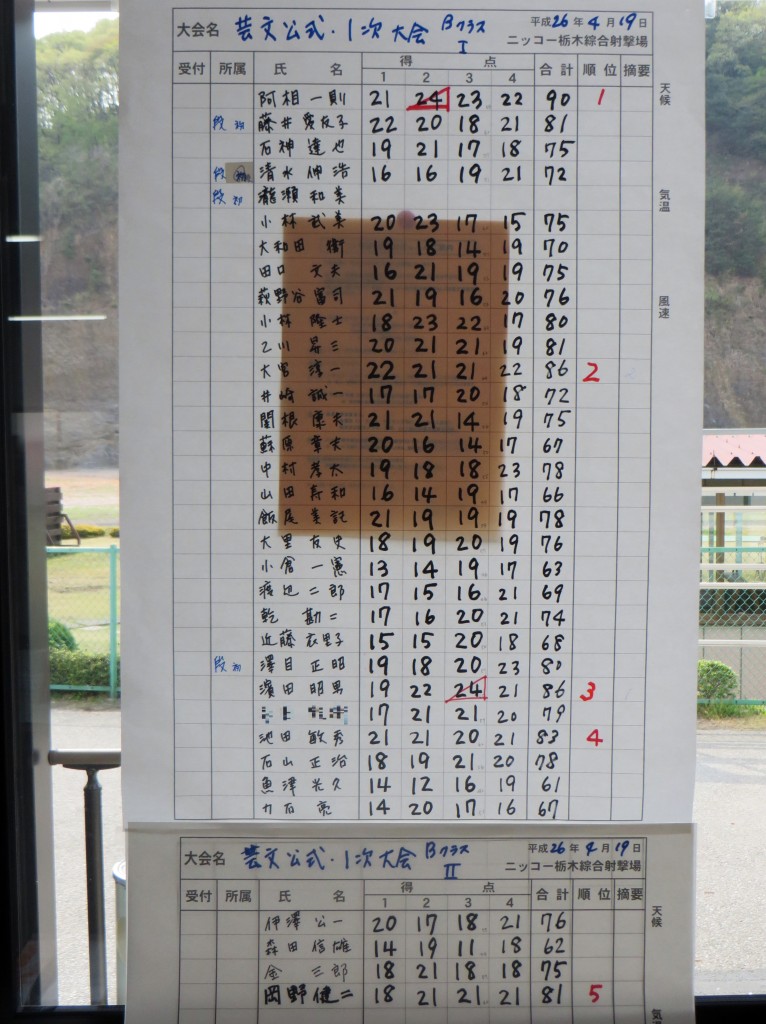 大会名 芸文公式・1次大会 Bクラス I 平成26年4月19日
ニッコー栃木綜合射撃場
受付 所属 氏 名 得 点 合計 順位 摘要
1 2 3 4
天候
阿相一則 21 24 23 22 90 1
段 初 藤井愛友子 22 20 18 21 81
石神達也 19 21 17 18 75
段 清水伸浩 16 16 19 21 72
段 初 瀧瀬和美
気温
小林武美 20 23 17 15 75
大和田衛 19 18 14 19 70
田口文夫 16 21 19 19 75
萩野谷富司 21 19 16 20 76
風速
小林隆士 18 23 22 17 80
乙川昇三 20 21 21 19 81
大宮淳一 22 21 21 22 86 2
井崎誠一 17 17 20 18 72
関根康夫 21 21 14 19 75
蘇原章夫 20 16 14 17 67
中村孝太 19 18 18 23 78
山田寿和 16 14 19 17 66
飯尾美記 21 19 19 19 78
大里友史 18 19 20 19 76
小倉一憲 13 14 19 17 63
渡辺二郎 17 15 16 21 69
乾勘二 17 16 20 21 74
近藤衣里子 15 15 20 18 68
段 初 澤目正明 19 18 20 23 80
濱田昭男 19 22 24 21 86 3
17 21 21 20 79
池田敏秀 21 21 20 21 83 4
石山正治 18 19 21 20 78
魚津光久 14 12 16 19 61
力石亮 14 20 17 16 67
大会名 芸文公式・1次大会 Bクラス II 平成26年4月19日
ニッコー栃木綜合射撃場
受付 所属 氏 名 得 点 合計 順位 摘要
1 2 3 4
天候
伊澤公一 20 17 18 21 76
森田信雄 14 19 11 18 62
金三郎 18 21 18 18 75
岡野健二 18 21 21 21 81 5